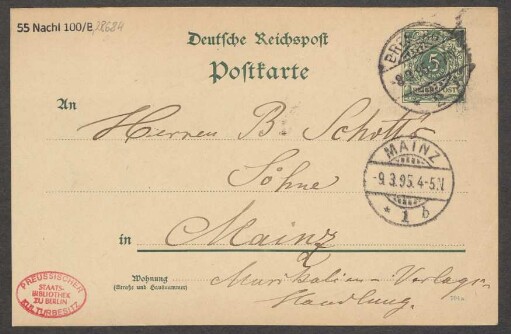 55 Nachl 100/B,
Deutsche Reichspost
Postkarte
An
Herren B. Schott's
Söhne
in Mainz
Wohnung
(Straße und Hausnummer)
Musikalien-Verlags-
Handlung.
5
REICHSPOST
MAINZ
-9.3.95.4-5.N
* 1 b
PREUSSISCHER
STAATS-
BIBLIOTHEK
ZU BERLIN
KULTURBESITZ